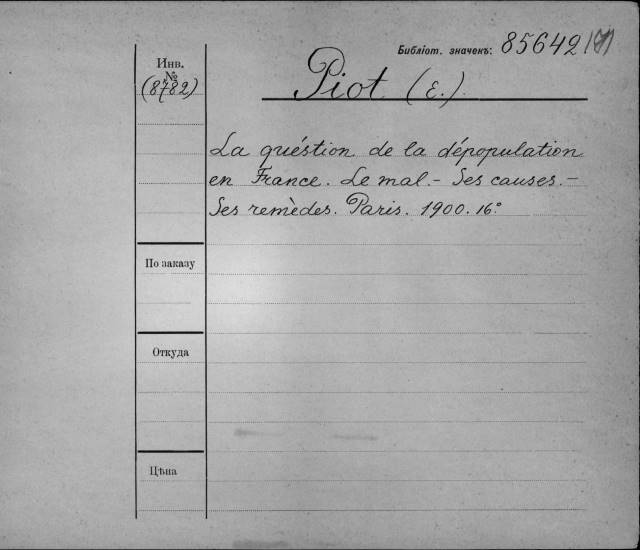 Библіот. значекъ: 85642
Инв.
№
(8782)
Piot (E.).
La quéstion de la dépopulation
en France. Le mal. – Ses causes. –
Ses remèdes. Paris. 1900. 16°
По заказу
Откуда
Цѣна